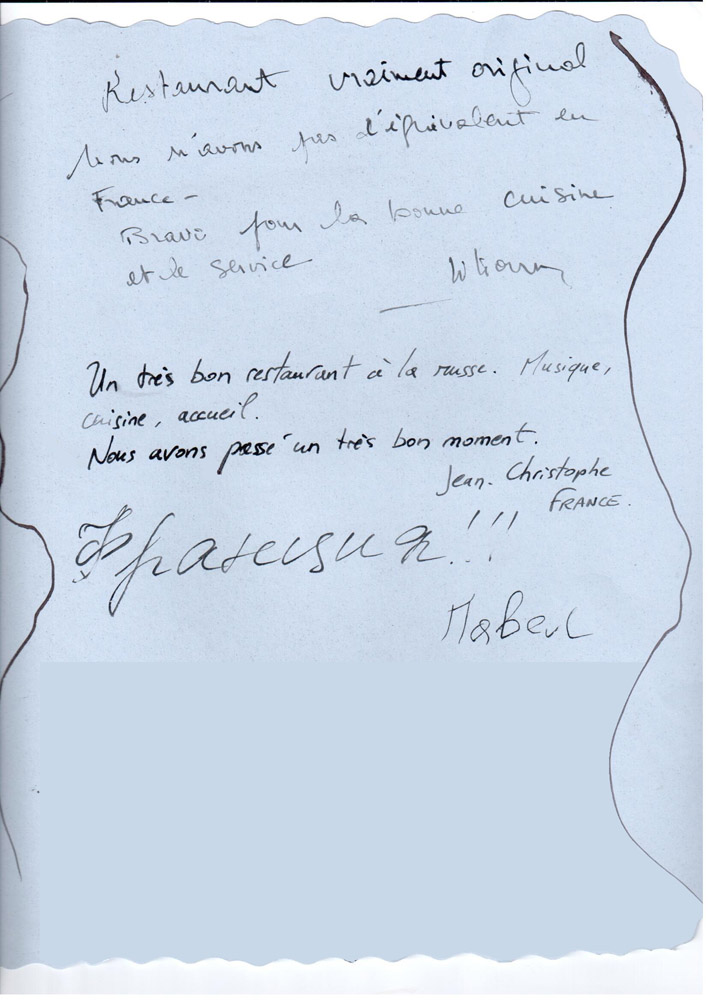 Restaurant vraiment original
Nous n'avons pas d'équivalent en
France -
Bravo pour la bonne cuisine
et le service
Un très bon restaurant à la russe. Musique,
cuisine, accueil.
Nous avons passé un très bon moment.
Jean-Christophe
FRANCE.
Франция!!!